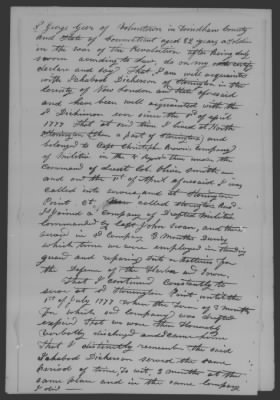 I George Geer of Voluntown in Windham County
and State of Connecticut aged 82 years a soldier
in the war of the Revolution after being duly
sworn according to Law, do on my oath
declare and say That, I am well acquainted
with Ichabod Dickerson of Stonington in the
County of New London and State aforesaid
and have been well acquainted with the
Dickerson ever since the 1st of april
1777 that at said time I lived at North
Stonington (then a part of Stonington) and
belonged to Capt Christoph Company
of Militia in the 8 Regt then under the
Command of Lieut Col Oliver Smith
and on the 1st of April aforesaid I was
called into service, and at Stonington
Point Ct, now called Stonington
I joined a Company of Drafted Militia
commanded by Capt John Swan, and there
served in said Company 3 Months During
which time we were employed in standing
guard and repairing batteries for
the Defence of the Harbor and Town.
That I continued Constantly to
serve at Stonington Point until the
1st of July 1777 when the term of 3 months
for which said Company was Drafted
expired that we were then Honorably
verbally discharged and came home
that I distinctly remember the said
Ichabod Dickerson served the same
period of time, to wit, 3 months at the
same place and in the same Company
I did